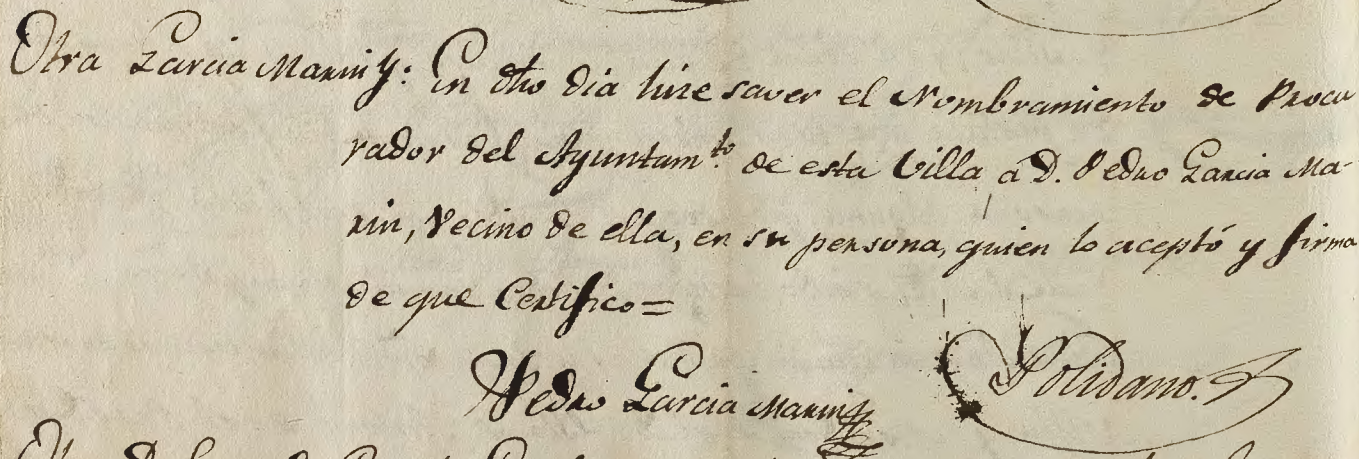 Otra Garcia Marin y: En dho dia hize saver el Nombramiento de Procu
rador del Ayuntamto. de esta Villa à D. Pedro Garcia Ma-
rin, Vecino de ella, en su persona, quien lo aceptó y firma
de que Certifico=
Pedro Garcia Marin Polidano.